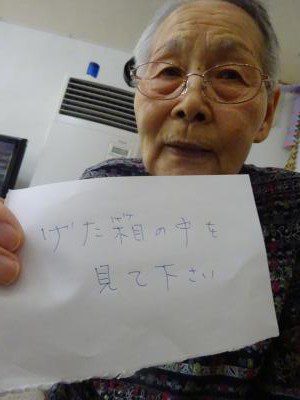 げた箱の中を
見て下さい